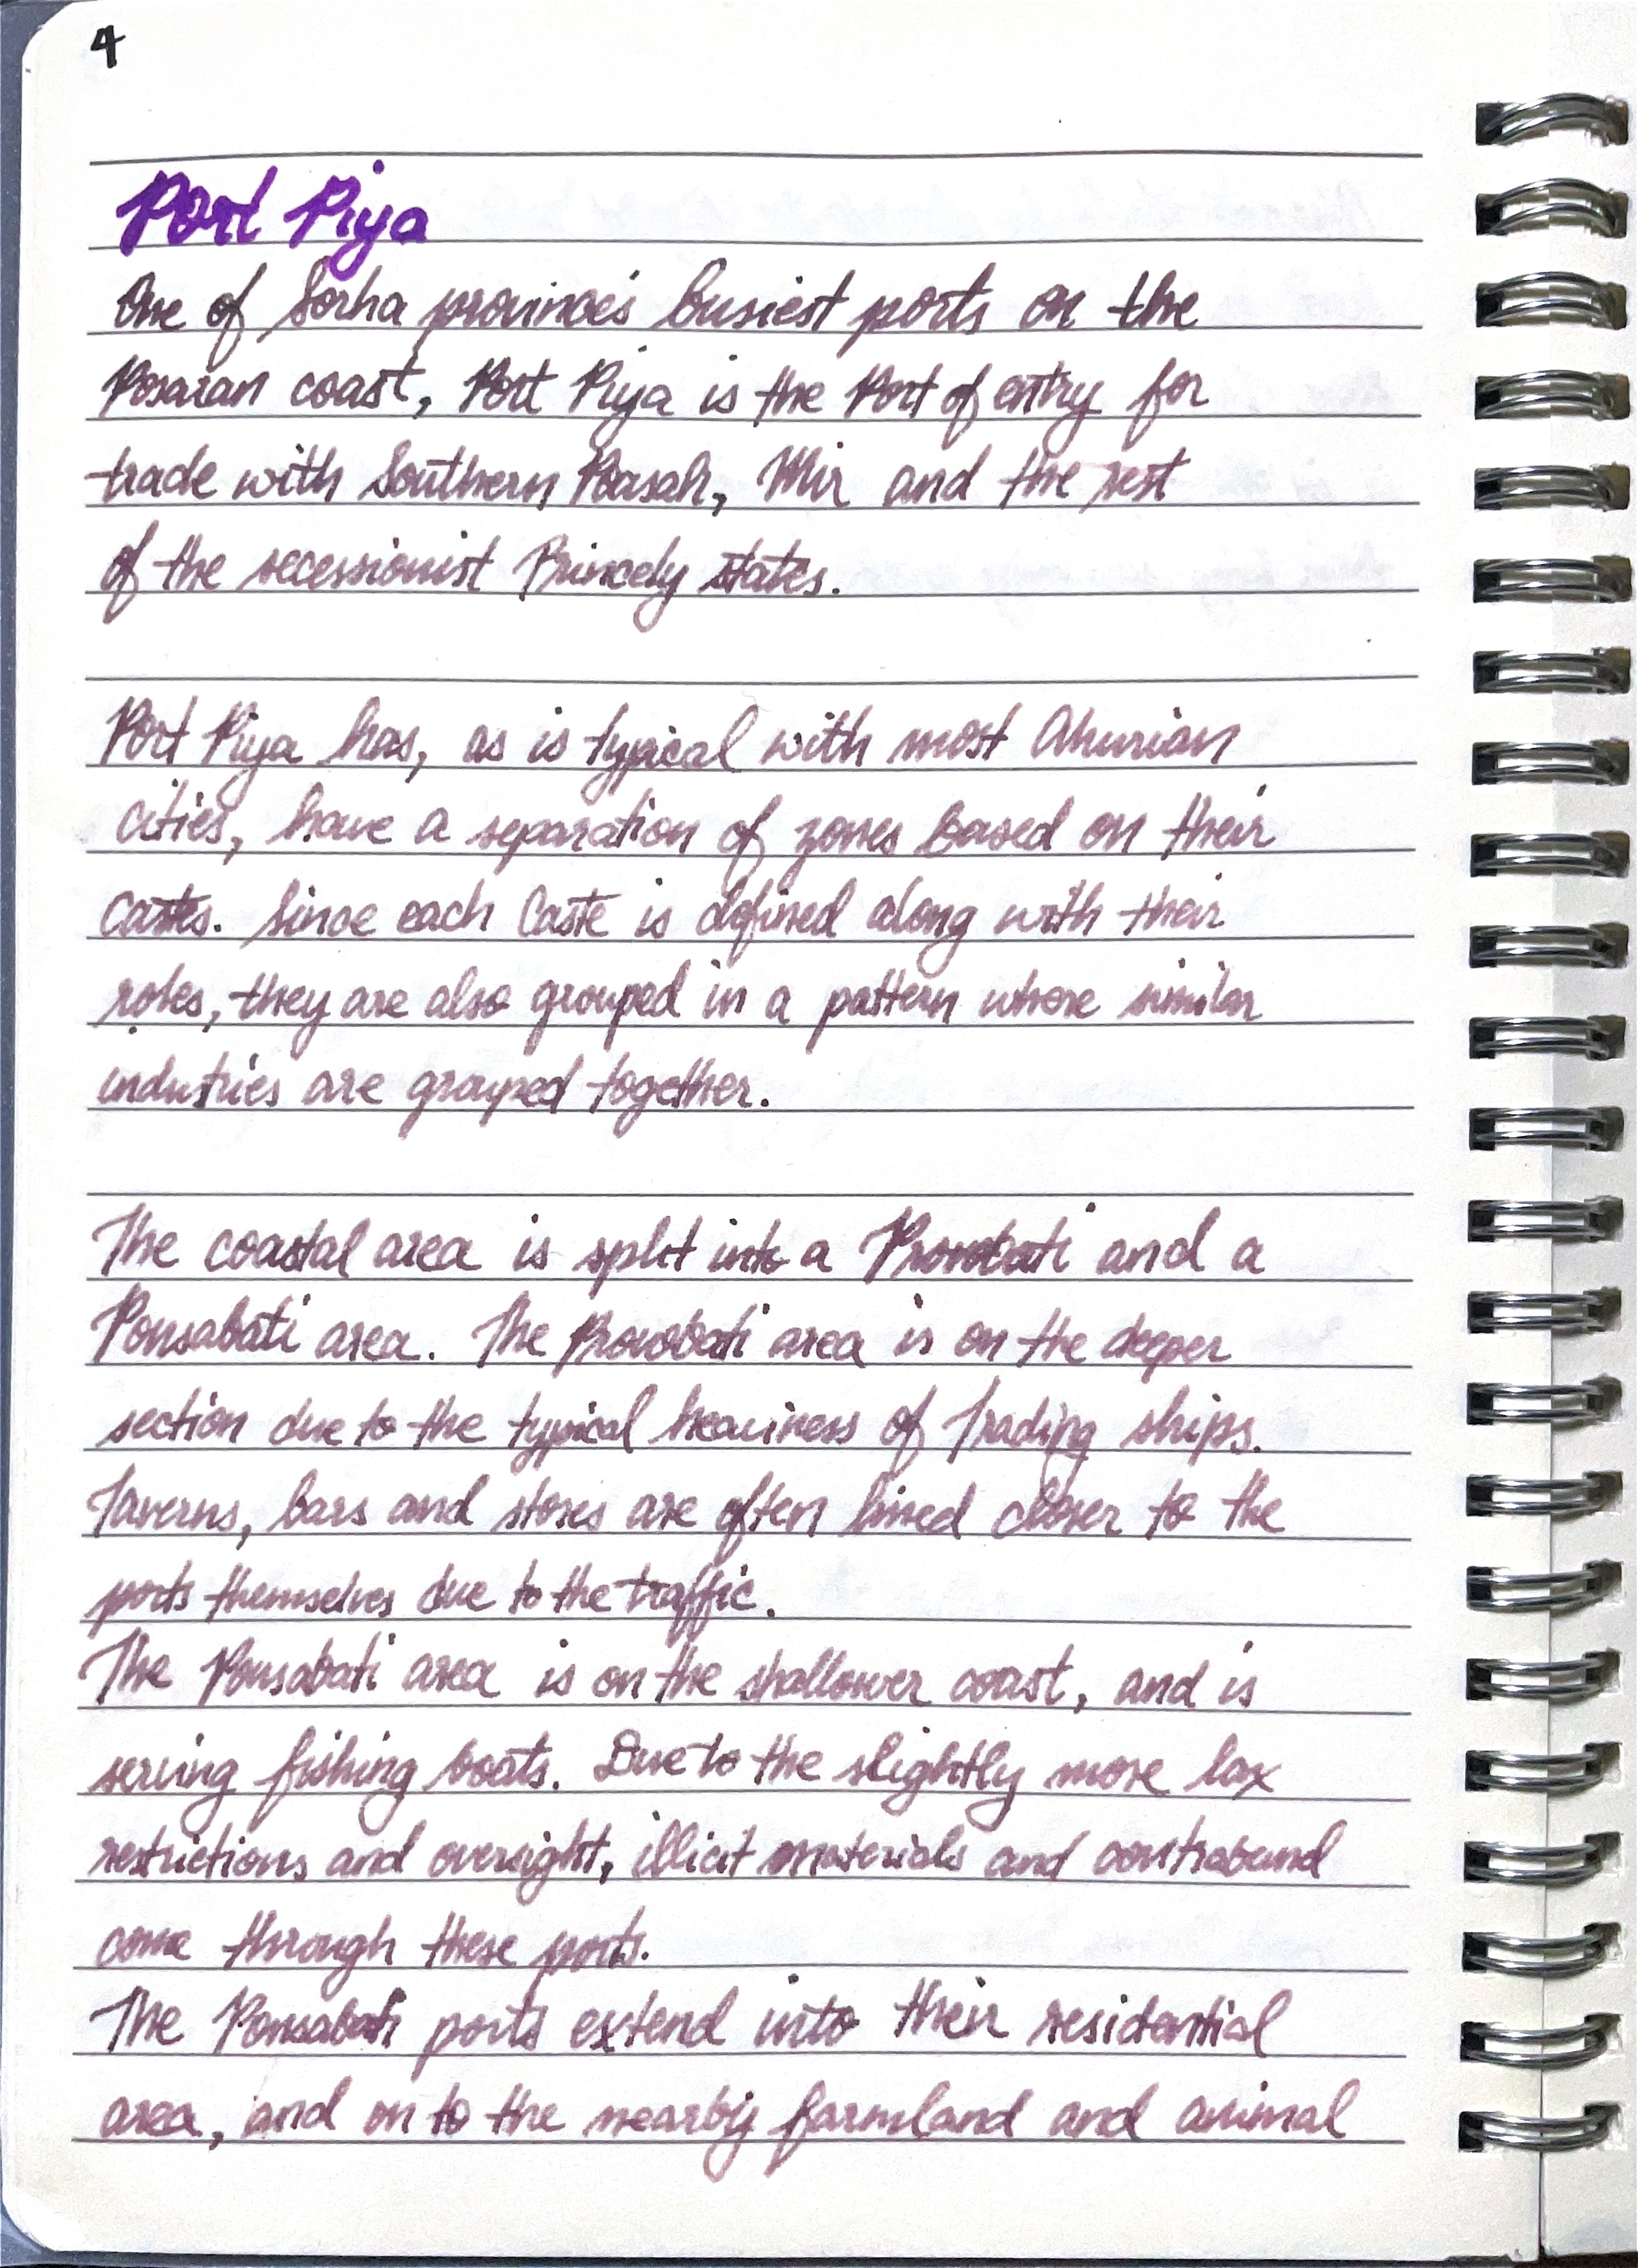 4
Port Piya
One of Sorha province's busiest ports on the
Posaran coast, Port Piya is the Port of entry for
trade with Southern Paasah, Mir and the rest
of the secessionist Princely states.
Port Piya has, as is typical with most Ahurian
cities, have a separation of zones based on their
castes. Since each Caste is defined along with their
roles, they are also grouped in a pattern where similar
industries are grouped together.
The coastal area is split into a and a
Ponsabati area. The area is on the deeper
section due to the typical heaviness of Trading ships.
Taverns, bars and stores are often lined closer to the
ports themselves due to the traffic.
The Ponsabati area is on the shallower coast, and is
serving fishing boats. Due to the slightly more lax
restrictions and oversight, illicit materials and contraband
come through these ports.
The Ponsabati ports extend into their residential
area, and on to the nearby farmland and animal